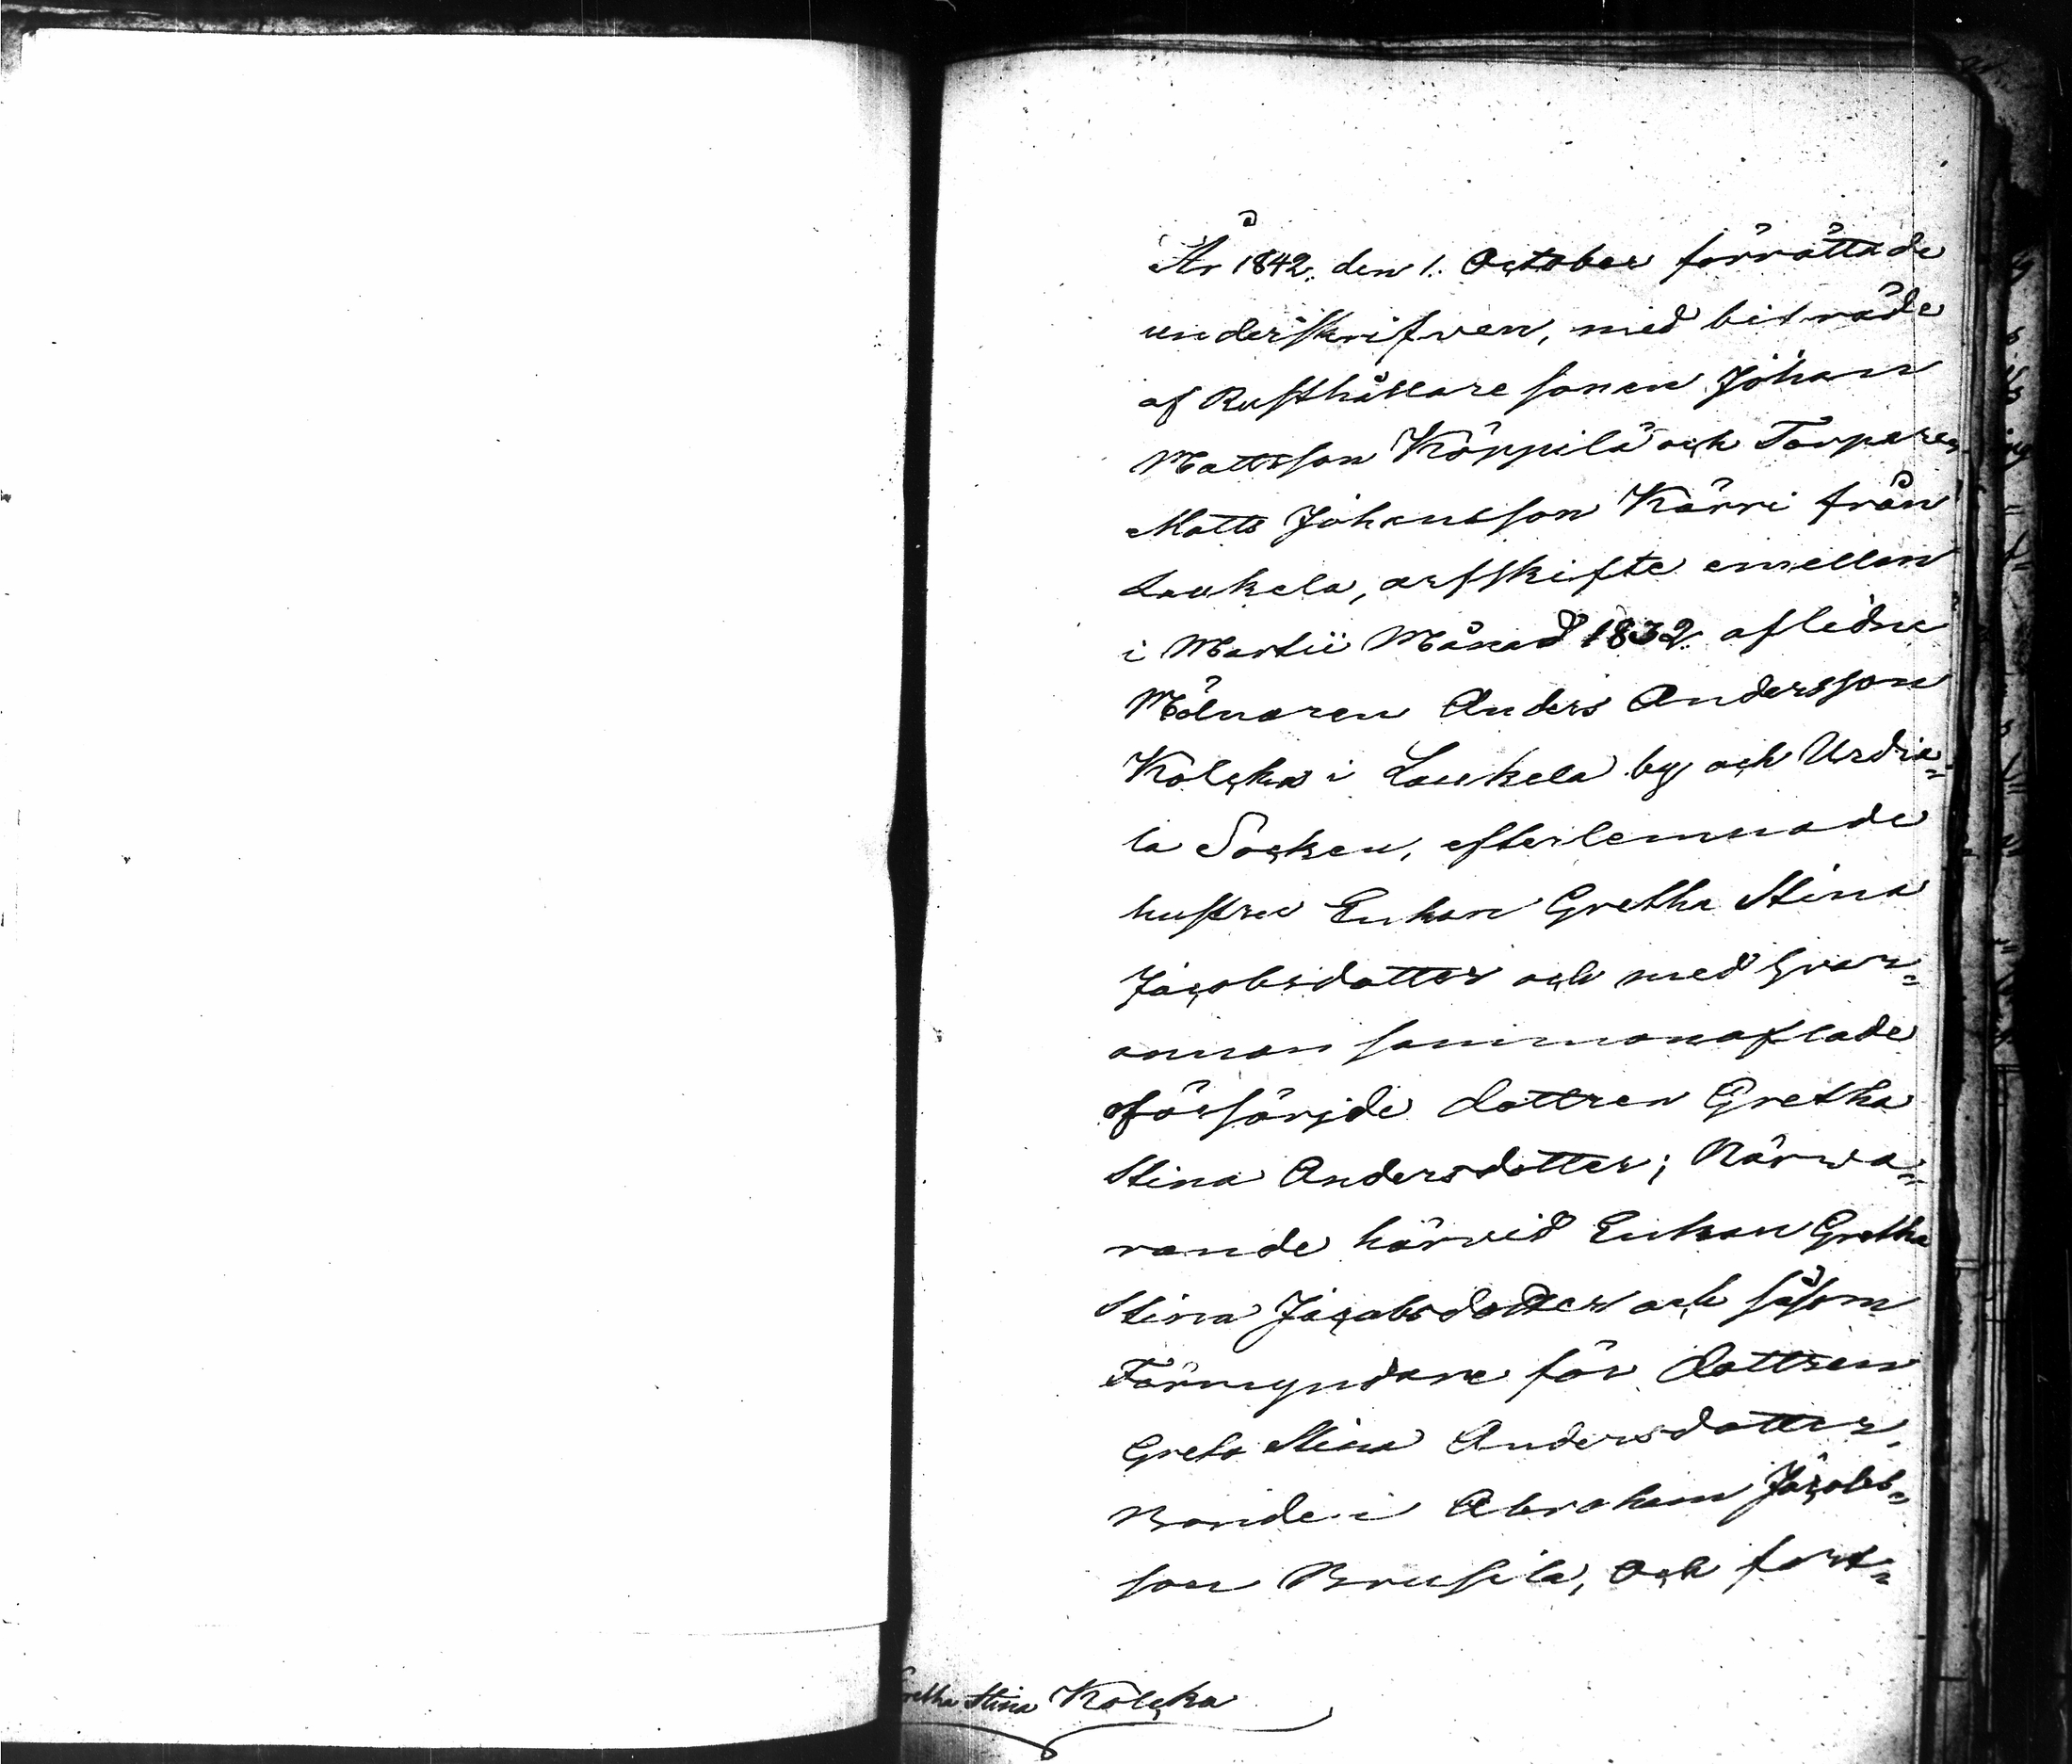 År 1842. den 1. October förrättade
underskrifven, med biträde
af Rusthållare sonen Johan
Mattsson Köppilä och Torparen
Matts Johansson Kärri från
Laukela, arfskifte emellan
i Martii Månad 1832 aflidne
Mölnaren Anders Andersson
Kölcka i Laukela by och Urdia=
la Socken, efterlemnade
hustru Enkan Gretha Stina
Jacobsdotter och med hvar=
annan sammanaflade
oförsörjde dottren Gretha
Stina Andersdotter; Närwa=
rande härvid Enkan Gretha
Stina Jacobsdotter och såsom
Förmyndare för dottren
Greta Stina Andersdotter,
Bonden Abraham Jacobs=
son Brusila, och fort=
Gretha Stina Kölcka